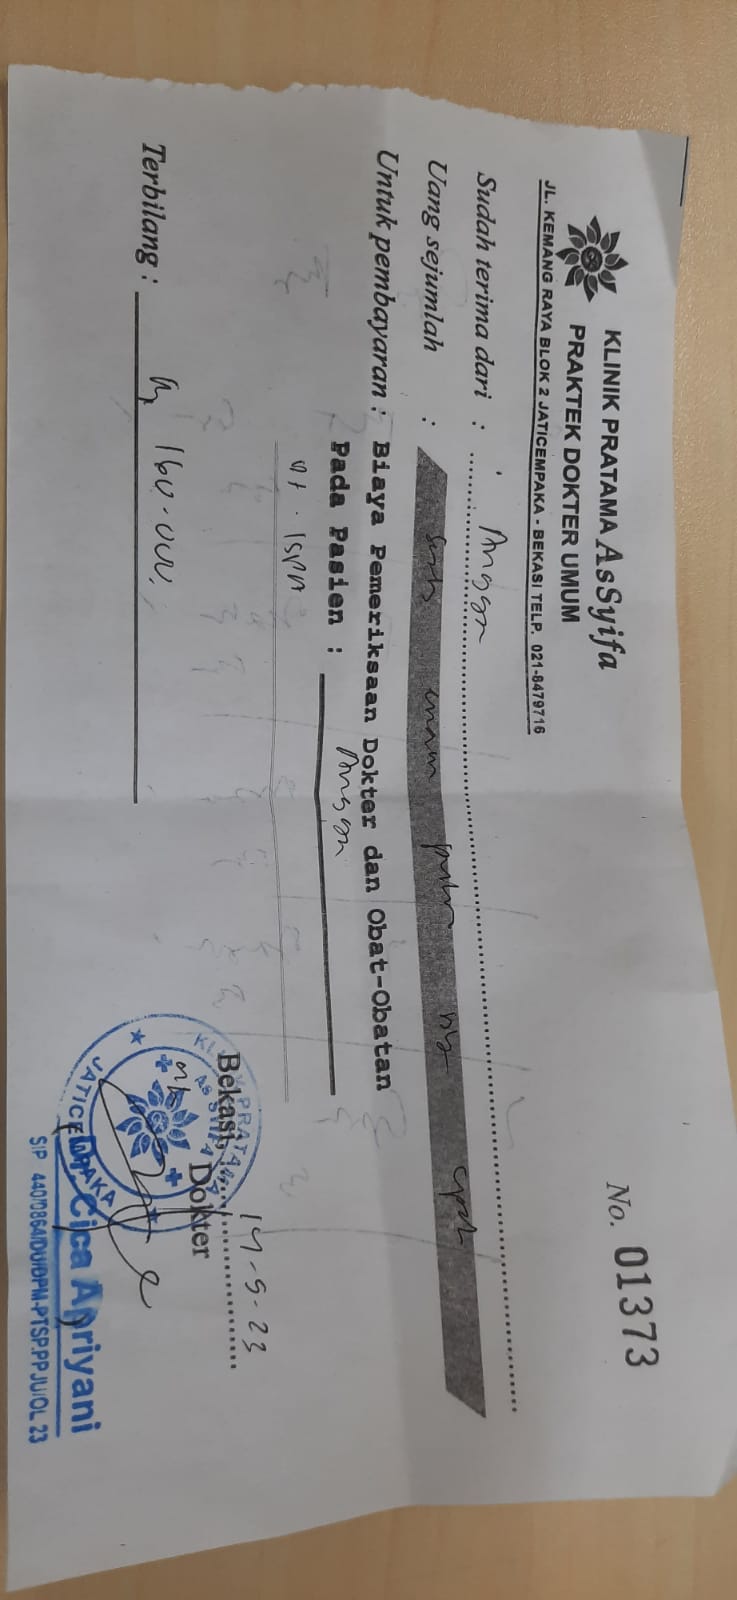 KLINIK PRATAMA AsSyifa
PRAKTEK DOKTER UMUM
JL. KEMANG RAYA BLOK 2 JATICEMPAKA - BEKASI TELP. 021-8479716
No. 01373
Sudah terima dari : Angga
Uang sejumlah : enam puluh
Untuk pembayaran : Biaya Pemeriksaan Dokter dan Obat-Obatan
Pada Pasien : Angga
ISPA
Bekasi, 14-5-23
Dokter
Terbilang : Rp 160.000,
KLINIK PRATAMA
As SYIFA
JATICEMPAKA
Dr. Cica Apriyani
SIP 440/0864/DU/DPM-PTSP.PPJU/OL 23